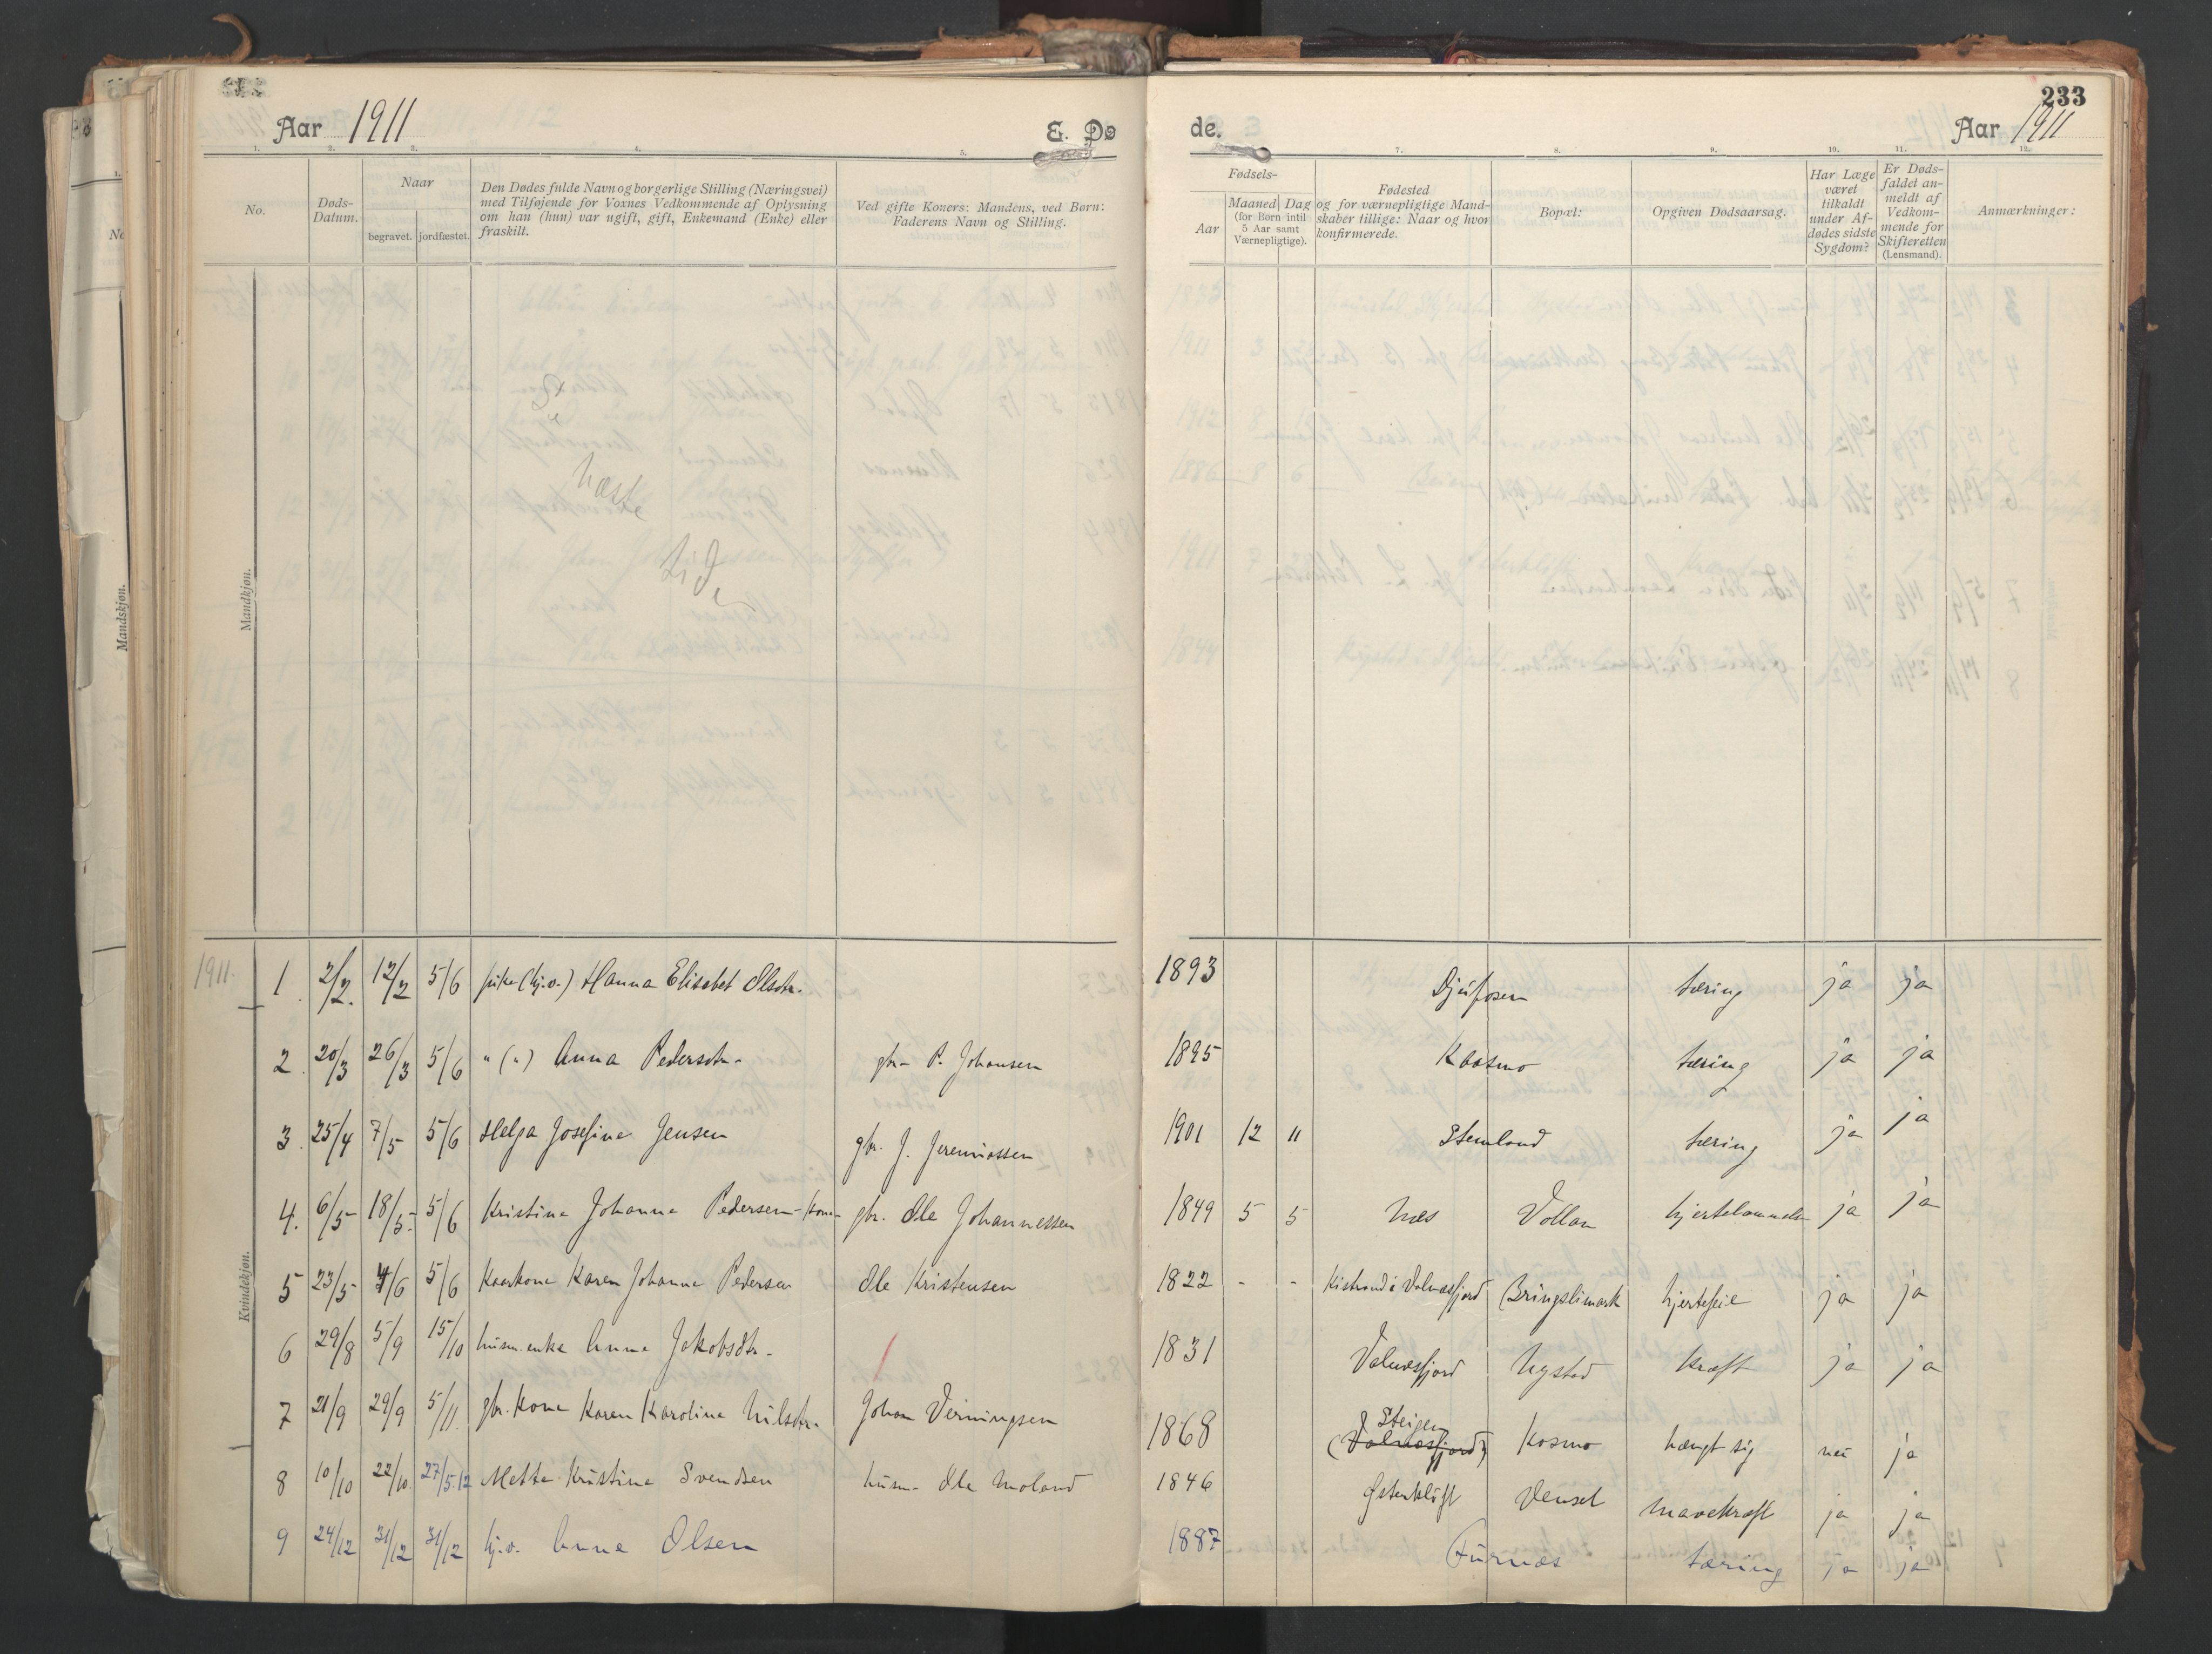 233
Aar 1911 E. Dø
de. Aar 1911
1. 2. 3. 4. 5.
7. 8. 9. 10. 11. 12.
No.
Døds-
Datum.
Naar
begravet. jordfæstet.
Den Dødes fulde Navn og borgerlige Stilling (Næringsvei)
med Tilføjende for Voxnes Vedkommende af Oplysning
om han (hun) var ugift, gift, Enkemand (Enke) eller
fraskilt.
Ved gifte Koners: Mandens, ved Børn:
Faderens Navn og Stilling.
Fødsels-
Aar
Maaned Dag
(for Børn intil
5 Aar samt
Værnepligtige).
Fødested
og for værnepligtige Mand-
skaber tillige: Naar og hvor
konfirmerede.
Bopæl:
Opgiven Dødsaarsag.
Har Læge
været
tilkaldt
under Af-
dødes sidste
Sygdom?
Er Døds-
faldet an-
meldt af
Vedkom-
mende for
Skifteretten
(Lensmand).
Anmærkninger:
Mandskjøn.
Mandkjøn.
Se
næste
Side
Kvindekjøn.
1911. 1. 2/2. 12/2 5/6 pike (hj.v.) Hanna Elisabet Olsdtr. 1893 Djupfosen tæring ja ja
2. 20/3 26/3 5/6 " (") Anna Pedersdtr. gbr. P. Johansen 1895 Kaasmo tæring ja ja
3. 25/4 7/5 5/6 Helga Josefine Jensen gbr. J. Jeremiassen 1901 12 11 Stemland tæring ja ja
4. 6/5 18/5 5/6 Kristine Johanna Pedersen - kone gbr. Ole Johannessen 1849 5 5 Næs Vollan hjertelammelse ja ja
5 23/5 4/6 5/6 Kaarkone Karen Johanna Pedersen Ole Kristensen 1822 - - Kistrand i Valnæsfjord Bringslimark hjertefeil ja ja
6 29/8 5/9 15/10 husm.enke Anna Jakobsdtr. 1831 Valnæsfjord Nystad Kræft ja ja
7 21/9 29/9 5/11 gbr. kone Karen Karoline Nilsdtr. Johan Verningsen 1868 Steigen (Valnæsfjord) Kosmo hængt sig nei ja
8 10/10 22/10. 27/5.12 Mette Kristine Svendsen husm. Ole Moland 1846 Østerkløft Venset Mavekræft ja ja
9 24/12 31/12 31/12 hj.v. Anna Olsen 1887 Furnæs tæring ja ja